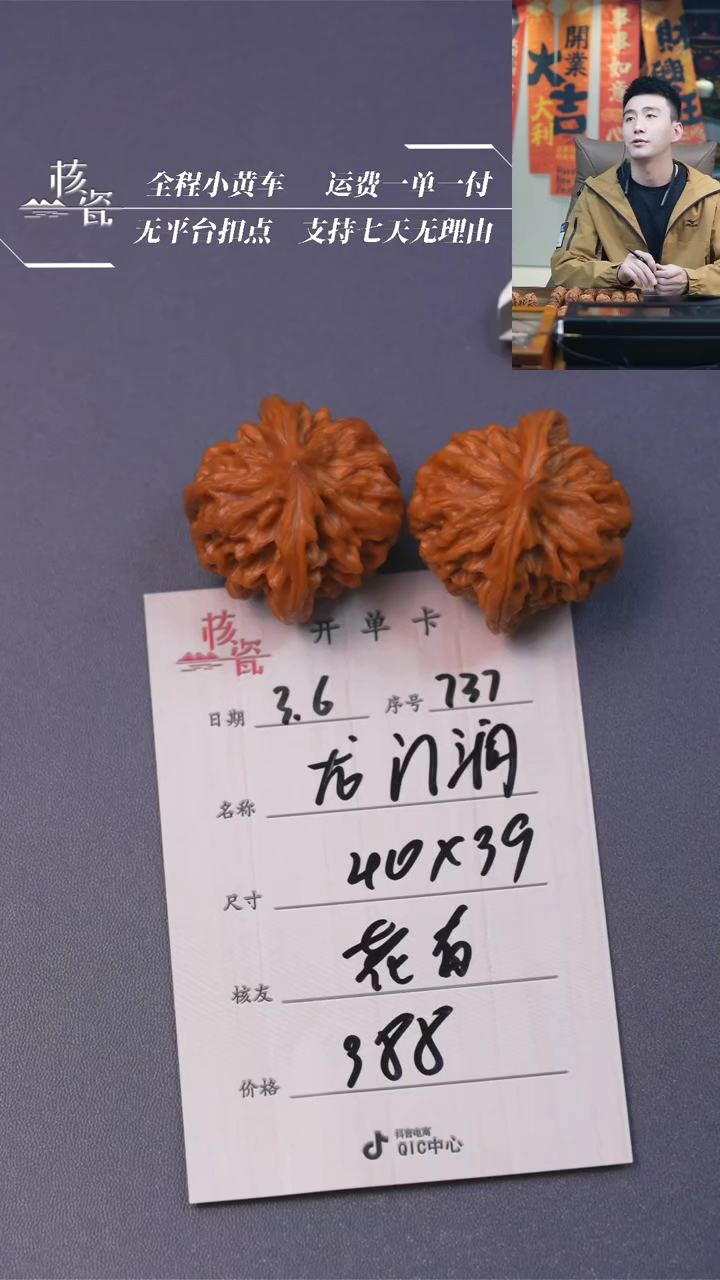 核瓷
全程小黄车 运费一单一付
无平台扣点 支持七天无理由
開業
大吉
大利
事事如意
財興旺
核瓷
开单卡
日期 3.6 序号 737
名称 龙门润
尺寸 40×39
核友 花有
价格 388
抖音电商
QIC中心